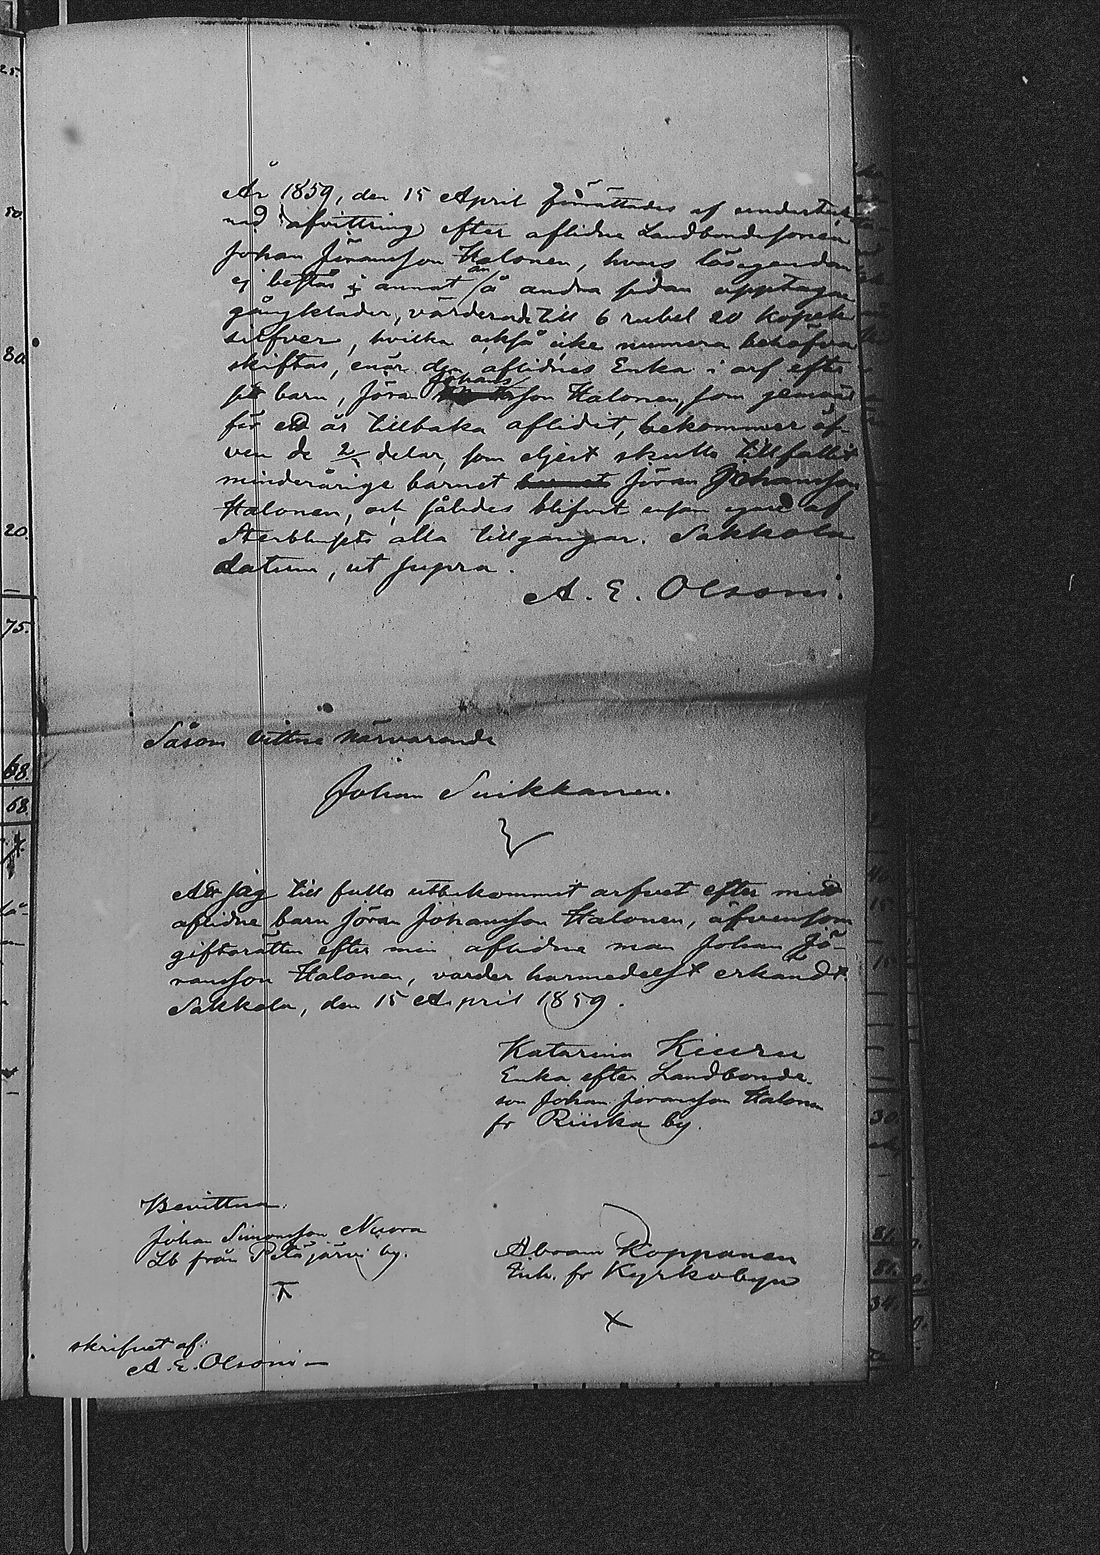 År 1859, den 15 April förrättades af underteck
nad afvittring efter aflidne Landbondesonen
Johan Jöransson Halonen, hvars lösegendom
ej består i annat än å andra sidan upptagne
gångkläder, värderade till 6 rubel 20 kopek
silfver, hvilka också icke numera behöfva
skiftas, enär den aflidnes Enka i arf efter
sitt barn, Jöran Johansson Halonen, som
för ett år tillbaka aflidit, bekommer äf-
ven de 2/3 delar, som eljest skulle tillfallit
minderårige barnet barnet Jöran Johansson
Halonen, och således blifvit ensam egare af
Sterbhusets alla tillgångar. Sakkola
datum, ut supra.
A. E. Olsoni.
Såsom vittne närvarande
Johan Suikkanen.
Att jag till fullo utbekommit arfvet efter mitt
aflidne barn Jöran Johansson Halonen, äfvensom
giftorätten efter min aflidne man Johan Jö-
ransson Halonen, varder härmedelst erkändt.
Sakkola, den 15 April 1859.
Katarina Kiuru
Enka efter Landbonde-
son Johan Jöransson Halonen
fr Riiska by.
Bevittna:
Johan Simonsson Nuora
Lb från Petäjärvi by.
Abram Koppanen
Inh. fr Kyrkobyn
skrifvet af:
A. E. Olsoni